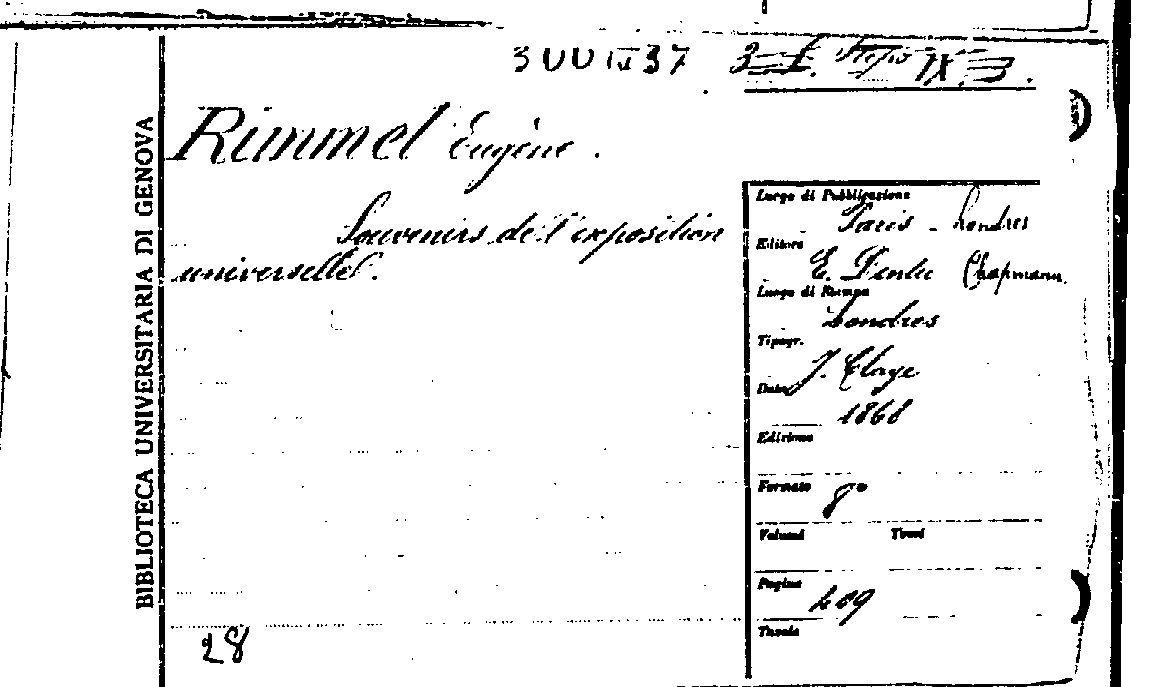 3 UU IX 37 3=L. IX.3.
Rimmel Eugène.
Souvenirs de l'exposition
universelle.
28
BIBLIOTECA UNIVERSITARIA DI GENOVA
Luogo di Pubblicazione
Paris - Londres
Editore
E. Dentu Chapmann.
Luogo di Stampa
Londres
Tipogr.
J. Claye
Data
1868
Edizione
Formato 8°
Volumi Tomi
Pagine
409
Tavole